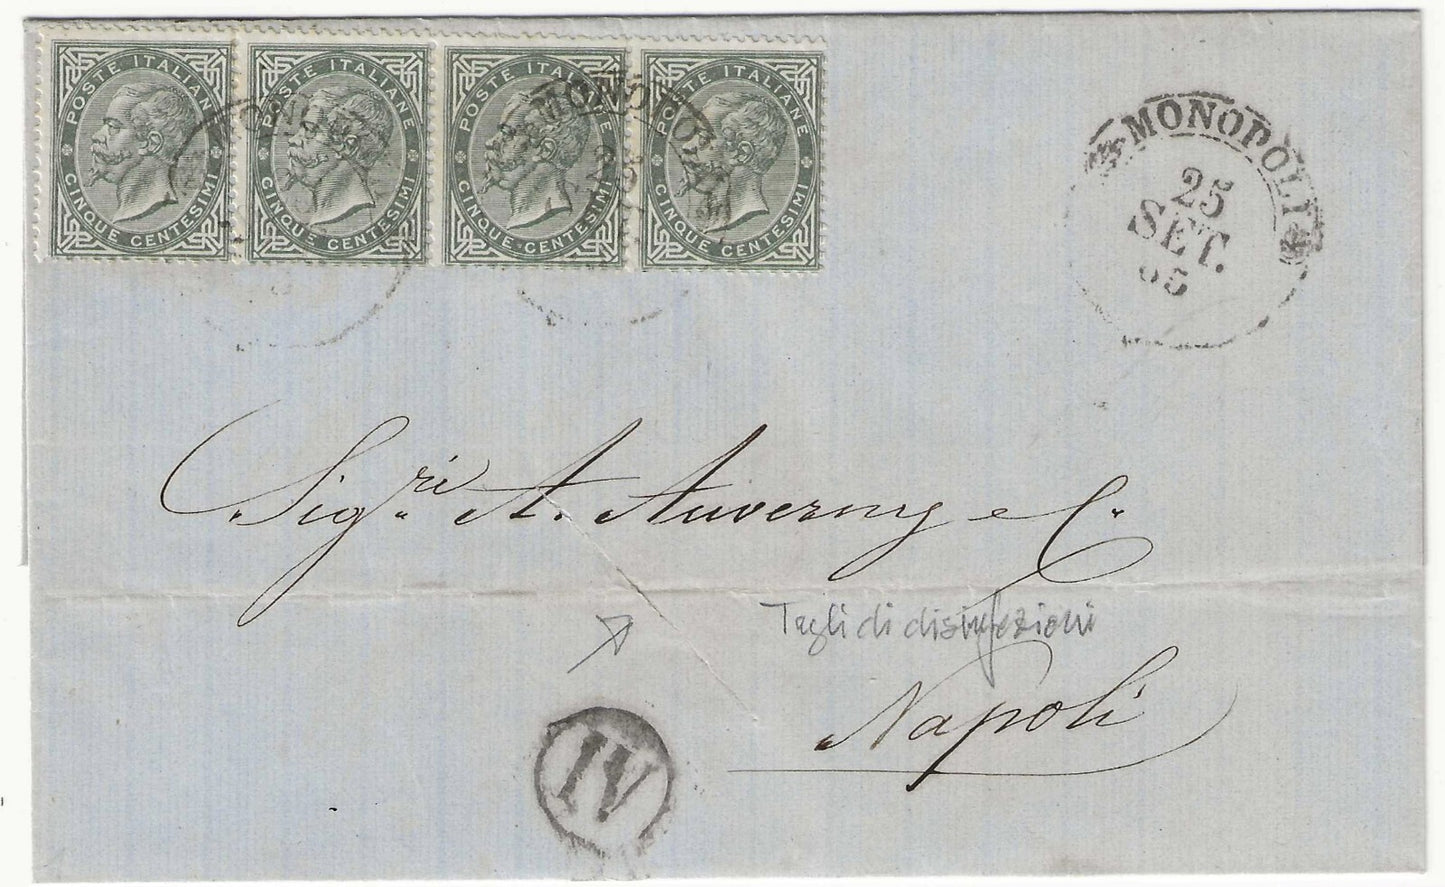 POSTE ITALIANE
CINQUE CENTESIMI
POSTE ITALIANE
CINQUE CENTESIMI
POSTE ITALIANE
CINQUE CENTESIMI
POSTE ITALIANE
CINQUE CENTESIMI
MONOPOLI
MONOPOLI
25
SET.
65
Sig.ri A. Auverny e C.
Tagli di disinfezioni
Napoli
IV